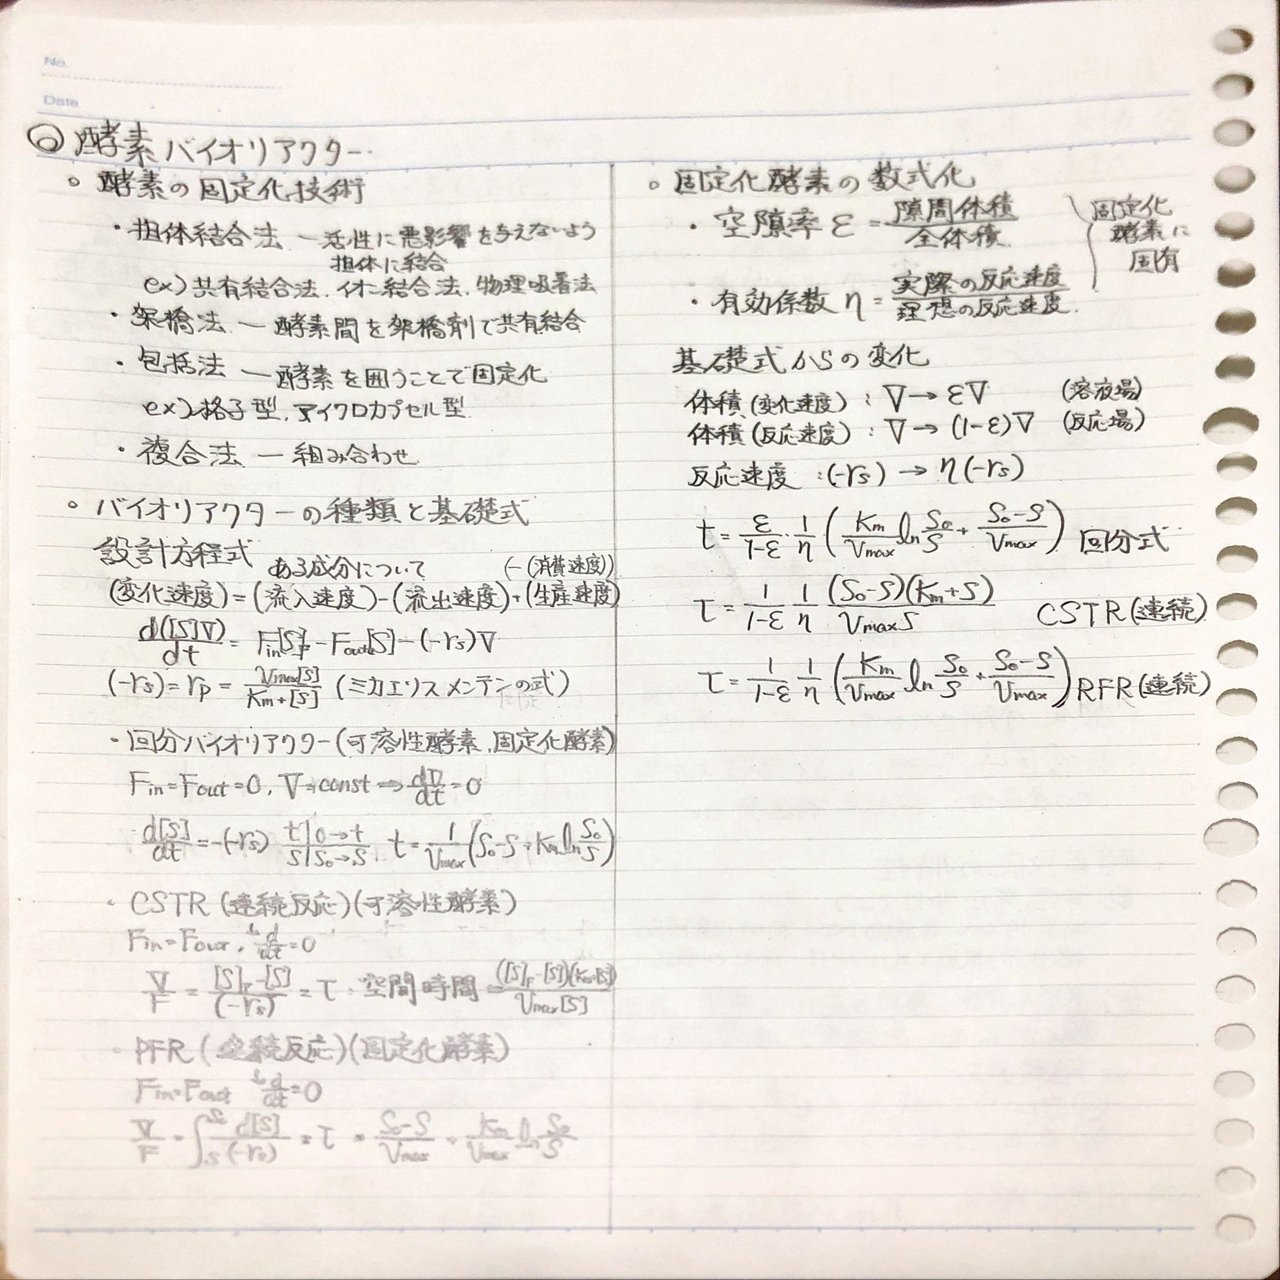 No.
Date
◎ 酵素バイオリアクター
○ 酵素の固定化技術
・担体結合法 ― 活性に悪影響を与えないよう
担体に結合
ex) 共有結合法、イオン結合法、物理吸着法
・架橋法 ― 酵素間を架橋剤で共有結合
・包括法 ― 酵素を囲うことで固定化
ex) 格子型、マイクロカプセル型
・複合法 ― 組み合わせ
○ バイオリアクターの種類と基礎式
設計方程式 ある成分について (-(消費速度))
(変化速度) = (流入速度) - (流出速度) + (生産速度)
d([S]V)/dt = Fin[S]F - Fout[S] - (-rs)V
(-rs) = rp = Vmax[S]/(Km+[S]) (ミカエリスメンテンの式)
・回分バイオリアクター(可溶性酵素、固定化酵素)
Fin = Fout = 0, V = const → dV/dt = 0
d[S]/dt = -(-rs) t|0→t S|S0→S, t = 1/Vmax (S0-S+Km ln S0/S)
・CSTR (連続反応)(可溶性酵素)
Fin = Fout, d/dt = 0
V/F = ([S]F-[S])/(-rs) = τ・空間時間 = ([S]F-[S])(Km+[S])/Vmax[S]
・PFR (連続反応)(固定化酵素)
Fin = Fout d/dt = 0
V/F = ∫S S0 d[S]/(-rs) = τ = (S0-S)/Vmax + Km/Vmax ln S0/S
○ 固定化酵素の数式化
・空隙率 ε = 隙間体積/全体積
・有効係数 η = 実際の反応速度/理想の反応速度
固定化
酵素に
固有
基礎式からの変化
体積(変化速度) : V → εV (溶液場)
体積(反応速度) : V → (1-ε)V (反応場)
反応速度 : (-rs) → η(-rs)
t = ε/(1-ε)・1/η (Km/Vmax ln S0/S + (S0-S)/Vmax) 回分式
τ = 1/(1-ε) 1/η (S0-S)(Km+S)/VmaxS CSTR(連続)
τ = 1/(1-ε) 1/η (Km/Vmax ln S0/S + (S0-S)/Vmax) RFR(連続)